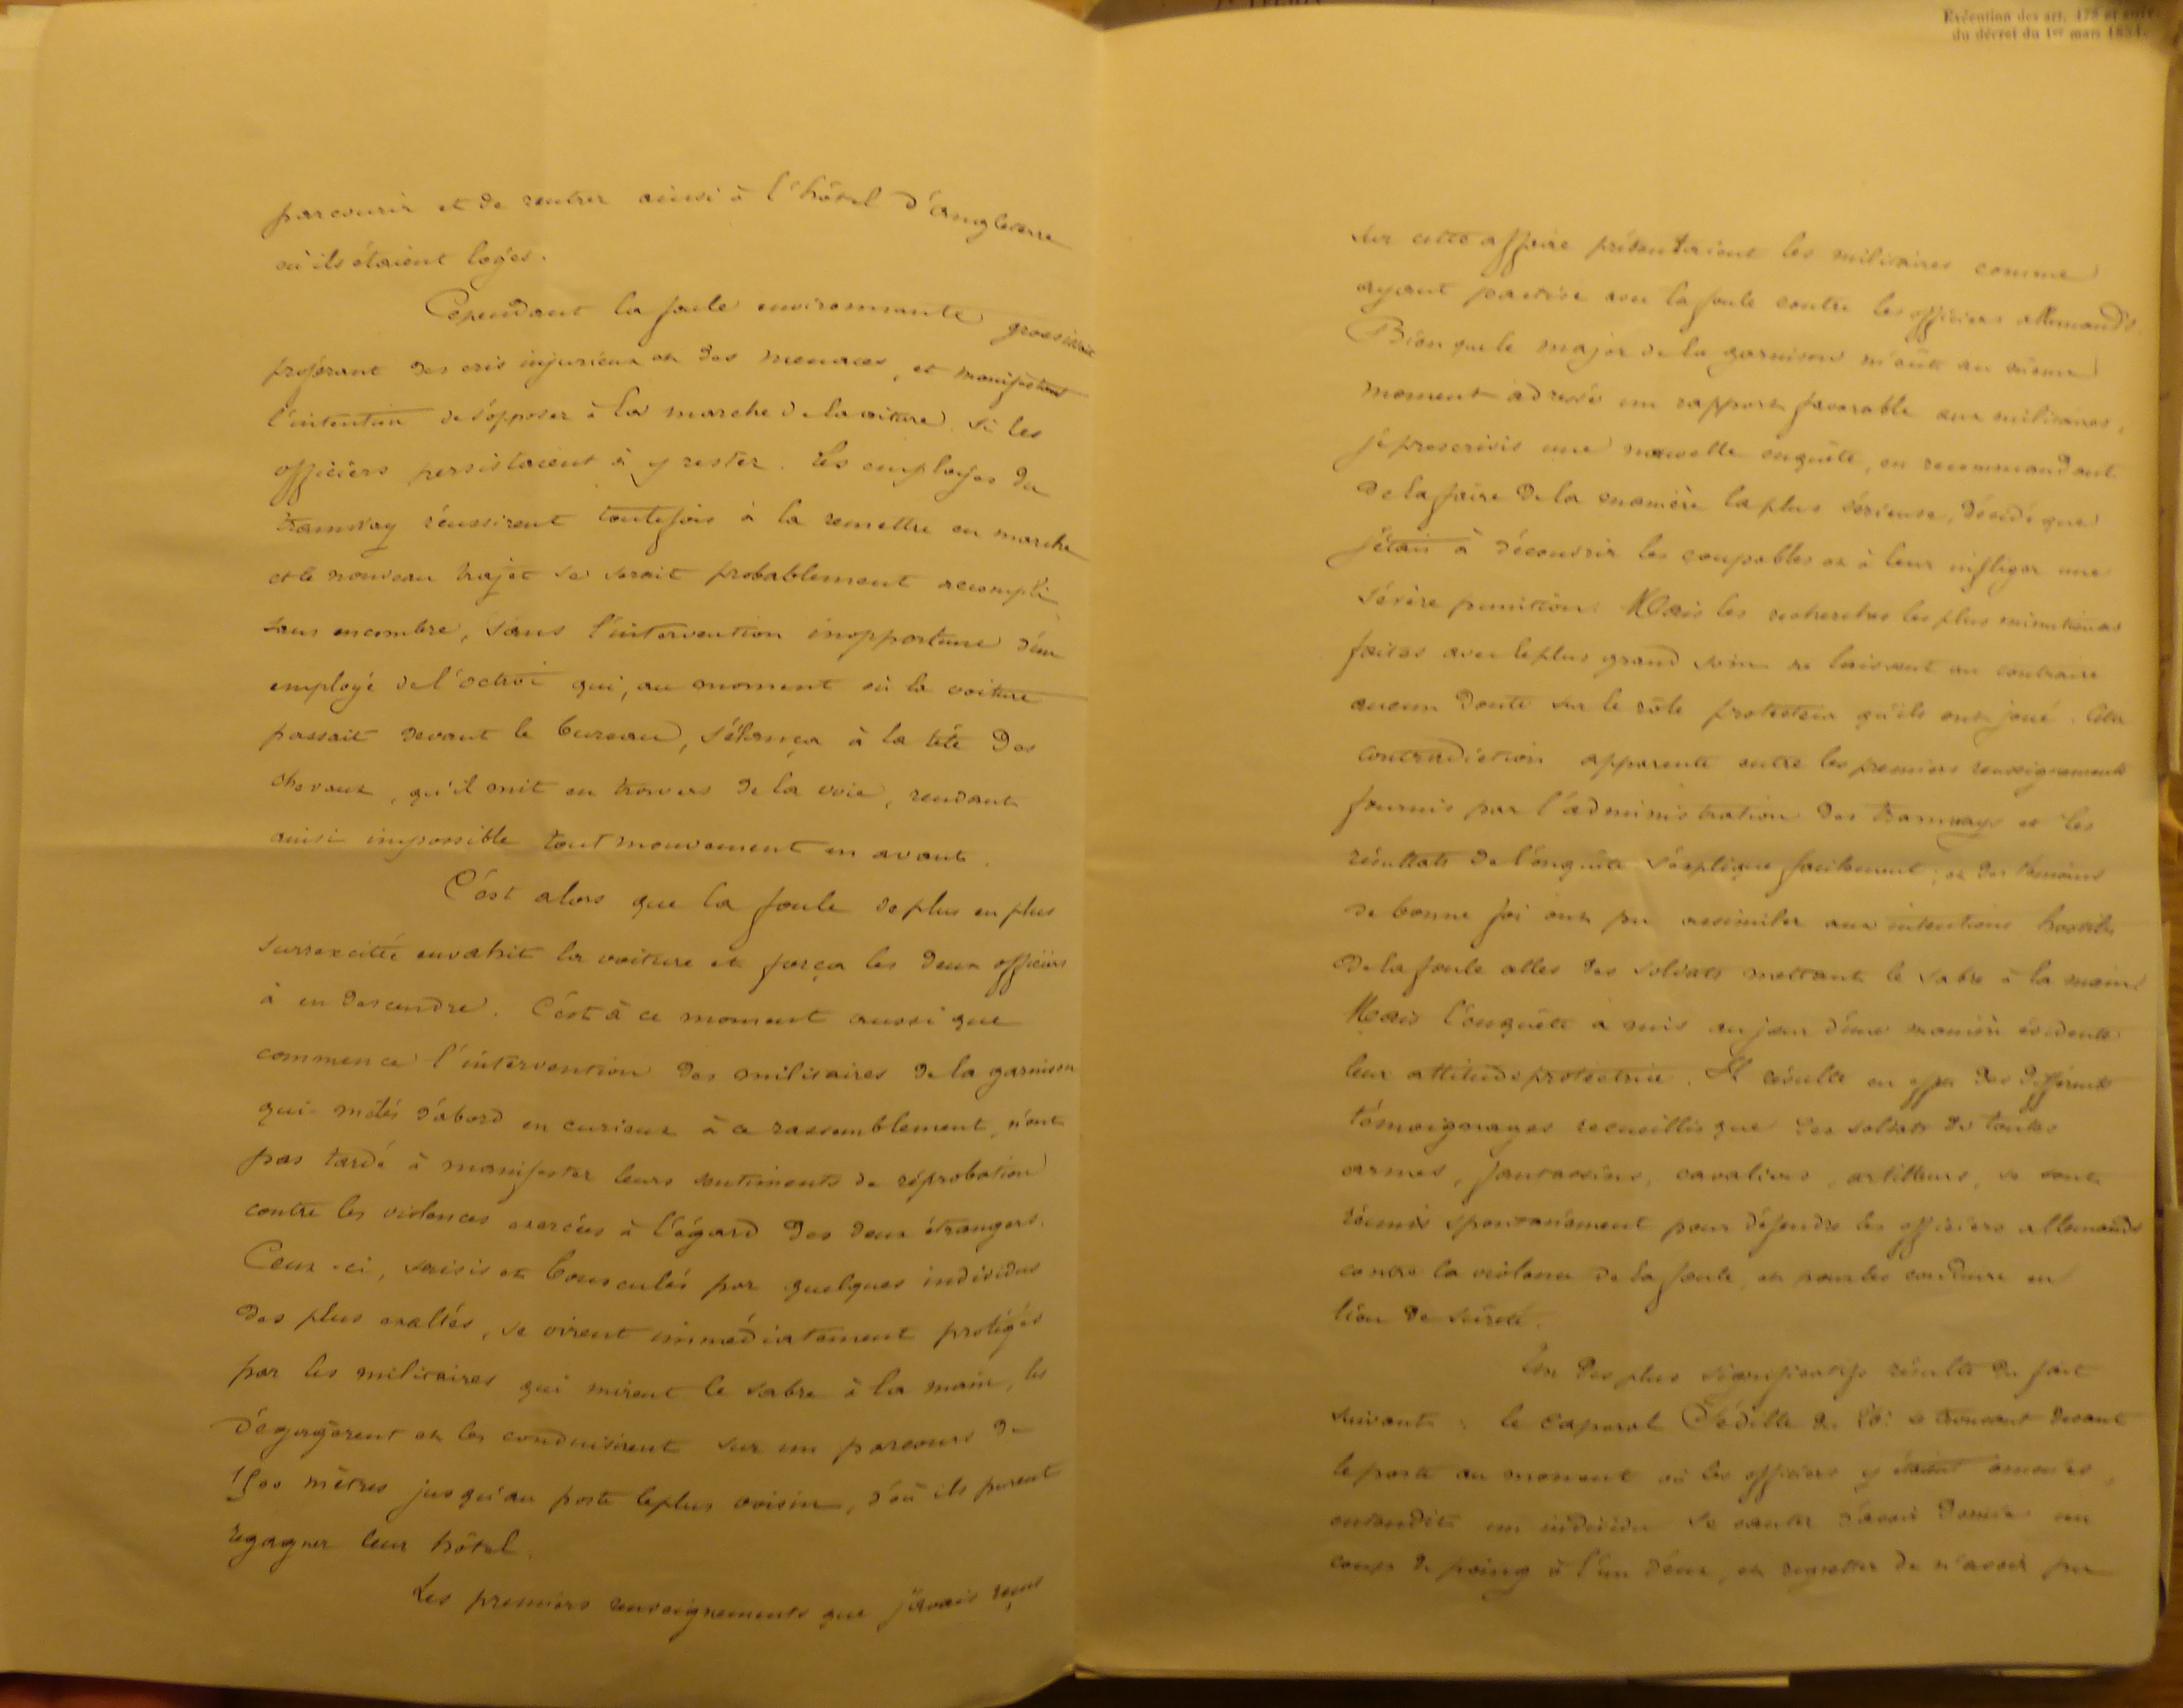 parcourir et de rentrer ainsi à l'hôtel d'Angleterre
où ils étaient logés.
Cependant la foule environnante grossissait
proférant des cris injurieux ou des menaces, et manifestant
l'intention de s'opposer à la marche de la voiture si les
officiers persistaient à y rester. Les employés du
tramway réussirent toutefois à la remettre en marche
et le nouveau trajet se serait probablement accompli
sans encombre, sans l'intervention inopportune d'un
employé de l'octroi qui, au moment où la voiture
passait devant le bureau, s'élança à la tête des
chevaux, qu'il mit en travers de la voie, rendant
ainsi impossible tout mouvement en avant.
C'est alors que la foule de plus en plus
surexcitée envahit la voiture et força les deux officiers
à en descendre. C'est à ce moment aussi que
commence l'intervention des militaires de la garnison
qui mêlés d'abord en curieux à ce rassemblement, n'ont
pas tardé à manifester leurs sentiments de réprobation
contre les violences exercées à l'égard des deux étrangers.
Ceux-ci, saisis et bousculés par quelques individus
des plus exaltés, se virent immédiatement protégés
par les militaires qui mirent le sabre à la main, les
dégagèrent et les conduisirent sur un parcours de
1500 mètres jusqu'au poste le plus voisin, d'où ils purent
regagner leur hôtel.
Les premiers renseignements que j'avais reçus
Exécution des art. 478 et suiv.
du décret du 1er mars 1854.
sur cette affaire présentaient les militaires comme
ayant pactisé avec la foule contre les officiers allemands.
Bien que le major de la garnison m'eût au même
moment adressé un rapport favorable aux militaires,
je prescrivis une nouvelle enquête, en recommandant
de la faire de la manière la plus sérieuse, décidé que
j'étais à découvrir les coupables et à leur infliger une
sévère punition. Mais les recherches les plus minutieuses
faites avec le plus grand soin ne laissent au contraire
aucun doute sur le rôle protecteur qu'ils ont joué. Cette
contradiction apparente entre les premiers renseignements
fournis par l'administration des tramways et les
résultats de l'enquête s'explique facilement, et des témoins
de bonne foi ont pu assimiler aux intentions hostiles
de la foule celles des soldats mettant le sabre à la main.
Mais l'enquête a mis au jour d'une manière évidente
leur attitude protectrice. Il résulte en effet des différents
témoignages recueillis que des soldats de toutes
armes, fantassins, cavaliers, artilleurs, se sont
réunis spontanément pour défendre les officiers allemands
contre la violence de la foule, et pour les conduire en
lieu de sûreté.
Un des plus significatifs résulte du fait
suivant : le caporal Sédille du se trouvant devant
le poste au moment où les officiers y étaient amenés,
entendit un individu se vanter d'avoir donné un
coup de poing à l'un d'eux, et regretter de n'avoir pu